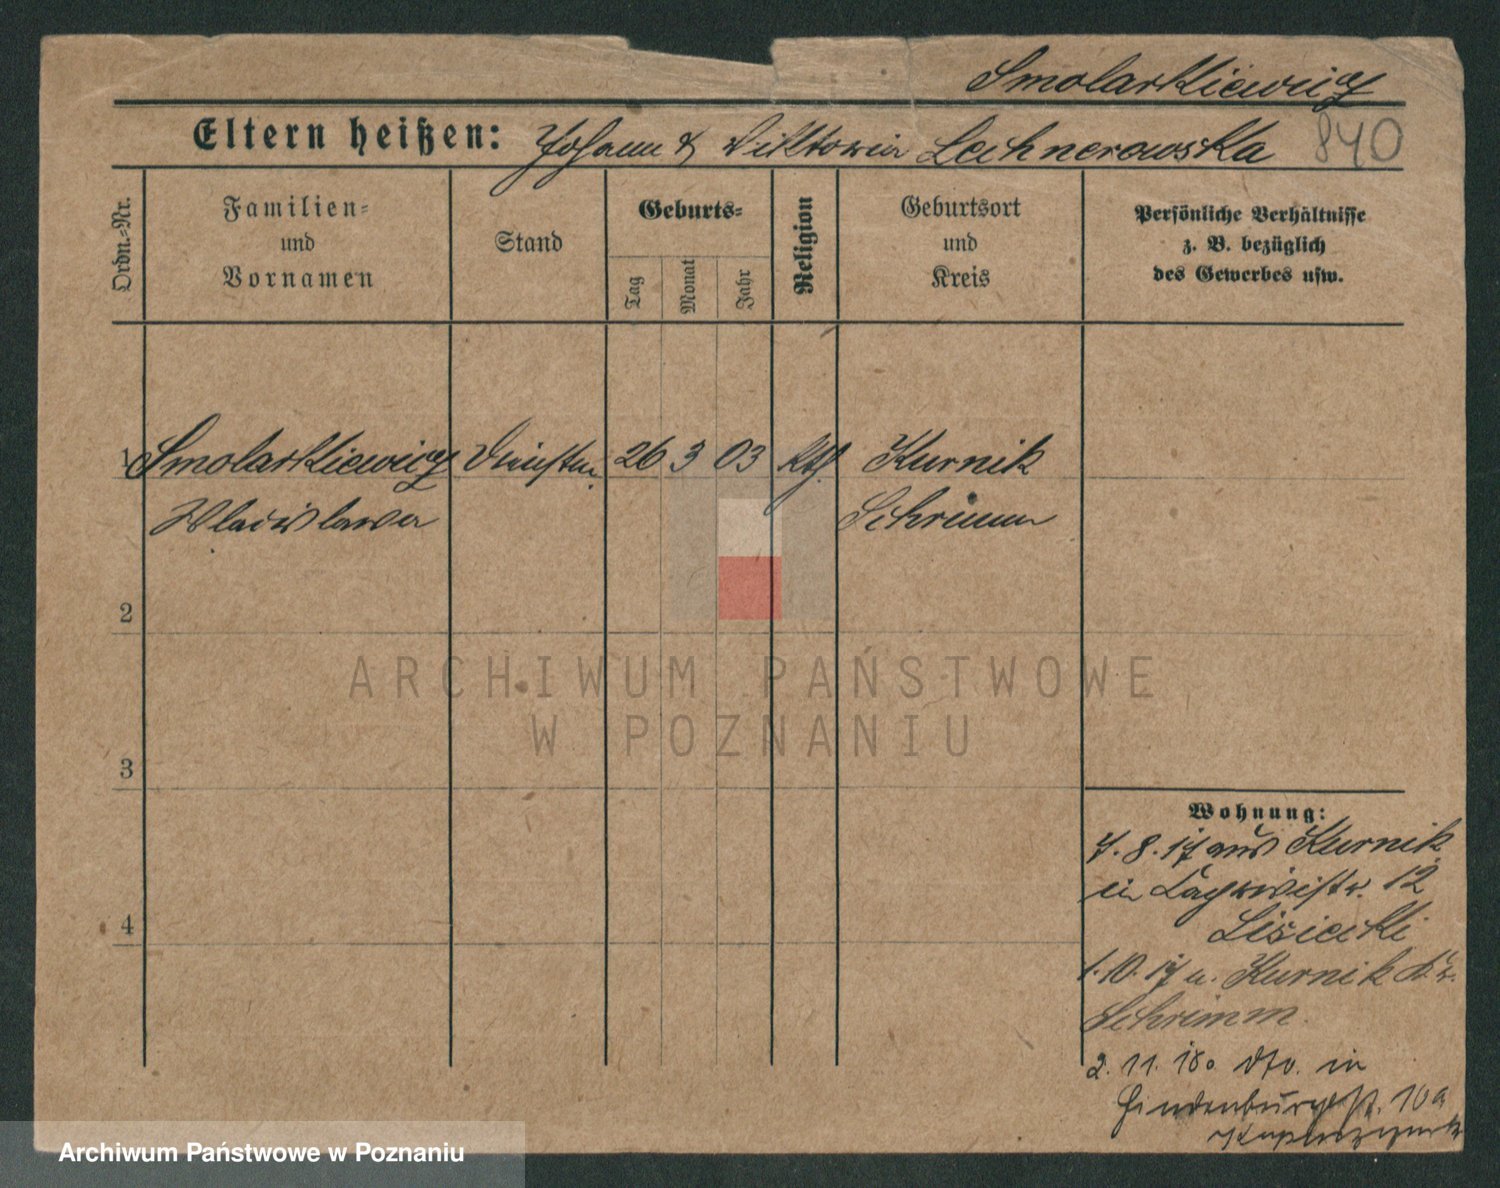 Smolarkiewicz
Eltern heißen: Johann & Viktoria Lechnerowska 840
Ordn.=Nr.
Familien=
und
Vornamen
Stand
Geburts=
Tag
Monat
Jahr
Religion
Geburtsort
und
Kreis
Persönliche Verhältnisse
z. B. bezüglich
des Gewerbes usw.
1 Smolarkiewicz 26 3 03 Kth. Kurnik
Wladislawa Schrimm
2
ARCHIWUM PAŃSTWOWE
W POZNANIU
3
4
Wohnung:
7. 8. 17 aus Kurnik
in 12
Lisiecki
1. 10. 17 n. Kurnik Kr.
Schrimm.
2. 11. 18. dto. in
Hindenburgst. 10a
Archiwum Państwowe w Poznaniu